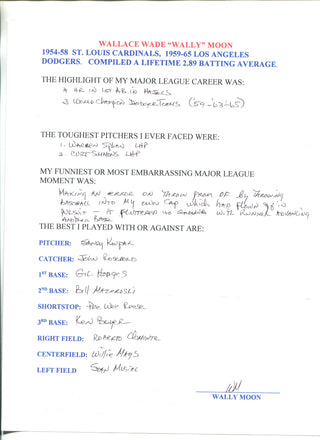 WALLACE WADE "WALLY" MOON
1954-58 ST. LOUIS CARDINALS, 1959-65 LOS ANGELES
DODGERS. COMPILED A LIFETIME 2.89 BATTING AVERAGE.
THE HIGHLIGHT OF MY MAJOR LEAGUE CAREER WAS:
HR IN 1ST AB IN MAJORS
3 WORLD CHAMPION DODGER TEAMS (59-63-65)
THE TOUGHEST PITCHERS I EVER FACED WERE:
1. WARREN SPAHN LHP
2. CURT SIMMONS LHP
MY FUNNIEST OR MOST EMBARRASSING MAJOR LEAGUE
MOMENT WAS:
MAKING AN ERROR ON THROW FROM OF BY THROWING
BASEBALL INTO MY OWN CAP WHICH HAD FLOWN OFF IN
- IT FLUTTERED TO GROUND WITH RUNNER ADVANCING
ANOTHER BASE
THE BEST I PLAYED WITH OR AGAINST ARE:
PITCHER: SANDY KOUFAX
CATCHER: JOHN ROSEBORO
1ST BASE: GIL HODGES
2ND BASE: BILL MAZEROSKI
SHORTSTOP: PEE WEE REESE
3RD BASE: KEN BOYER
RIGHT FIELD: ROBERTO CLEMENTE
CENTERFIELD: WILLIE MAYS
LEFT FIELD STAN MUSIAL
WM
WALLY MOON